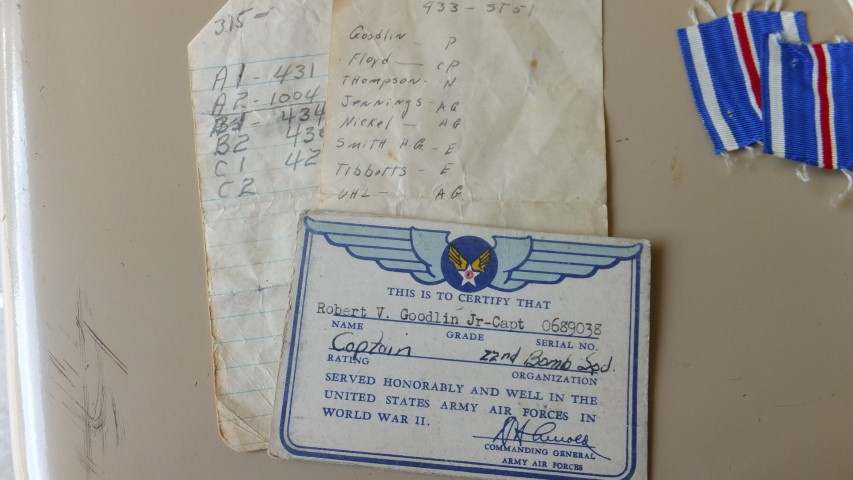 315 —
A1 - 431
A2 - 1004
B1 - 434
B2 43
C1 42
C2
433 - 5751
Goodlin - P
Floyd — CP
Thompson - N
Jennings - AG
Nickel — AG
Smith A.G. - E
Tibbotts - E
UHL - A.G.
THIS IS TO CERTIFY THAT
Robert V. Goodlin Jr-Capt 0689038
NAME GRADE SERIAL NO.
Captain 22nd Bomb Sqd.
RATING ORGANIZATION
SERVED HONORABLY AND WELL IN THE
UNITED STATES ARMY AIR FORCES IN
WORLD WAR II.
H H Arnold
COMMANDING GENERAL
ARMY AIR FORCES